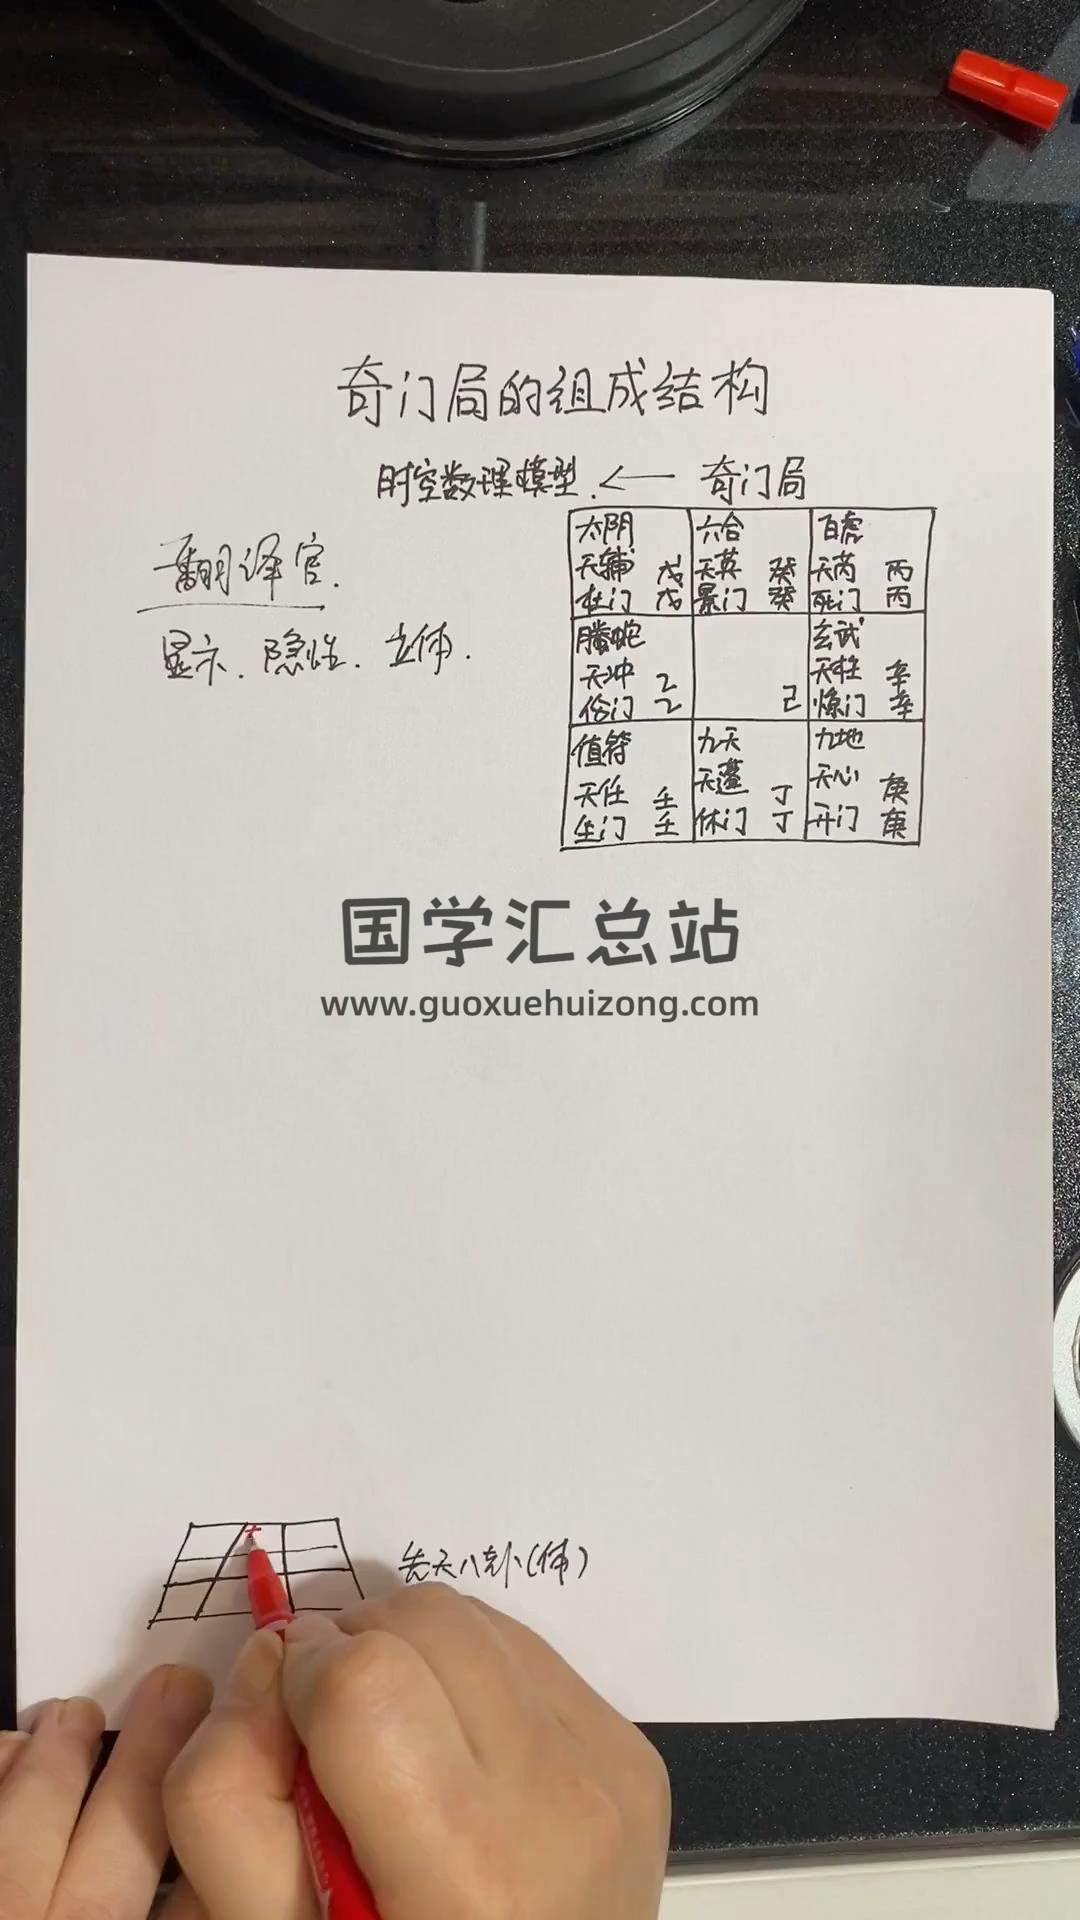 奇门局的组成结构
时空数理模型. ← 奇门局
翻译官.
显示. 隐性. 立体.
太阴 六合 白虎
天辅 戊 天英 癸 天芮 丙
杜门 戊 景门 癸 死门 丙
腾蛇 玄武
天冲 乙 天柱 辛
伤门 乙 己 惊门 辛
值符 九天 九地
天任 壬 天蓬 丁 天心 庚
生门 壬 休门 丁 开门 庚
国学汇总站
www.guoxuehuizong.com
先天八卦(体)